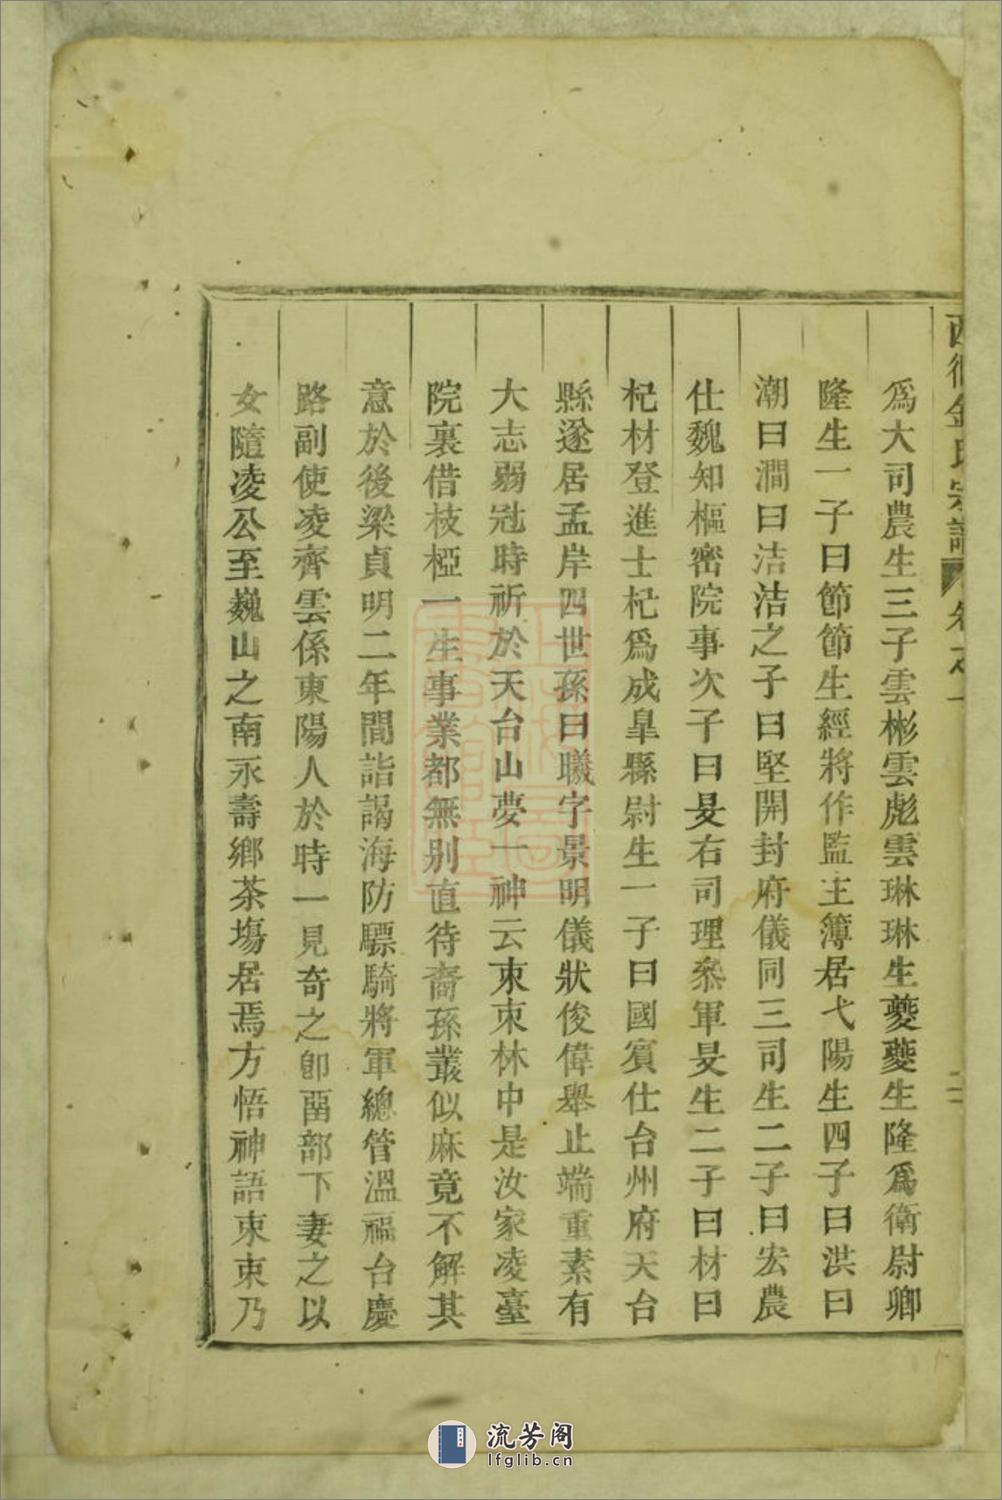 爲大司農生三子雲彬雲彪雲琳琳生夔夔生隆爲衛尉卿
隆生一子曰節節生經將作監主簿居弋陽生四子曰洪曰
潮曰澗曰洁洁之子曰堅開封府儀同三司生二子曰宏農
仕魏知樞密院事次子曰旻右司理叅軍旻生二子曰材曰
杞材登進士杞爲成臯縣尉生一子曰國賓仕台州府天台
縣遂居孟岸四世孫曰曦字景明儀狀俊偉舉止端重素有
大志弱冠時祈於天台山夢一神云東東林中是汝家凌臺
院裏借枝椏一生事業都無别直待裔孫叢似麻竟不解其
意於後梁貞明二年間詣謁海防驃騎將軍總管溫福台慶
路副使凌齊雲係東陽人於時一見奇之卽畱部下妻之以
女隨凌公至巍山之南永壽鄉茶塲居焉方悟神語東東乃
西 金氏宗譜 卷之一 二
流芳阁
lfglib.cn